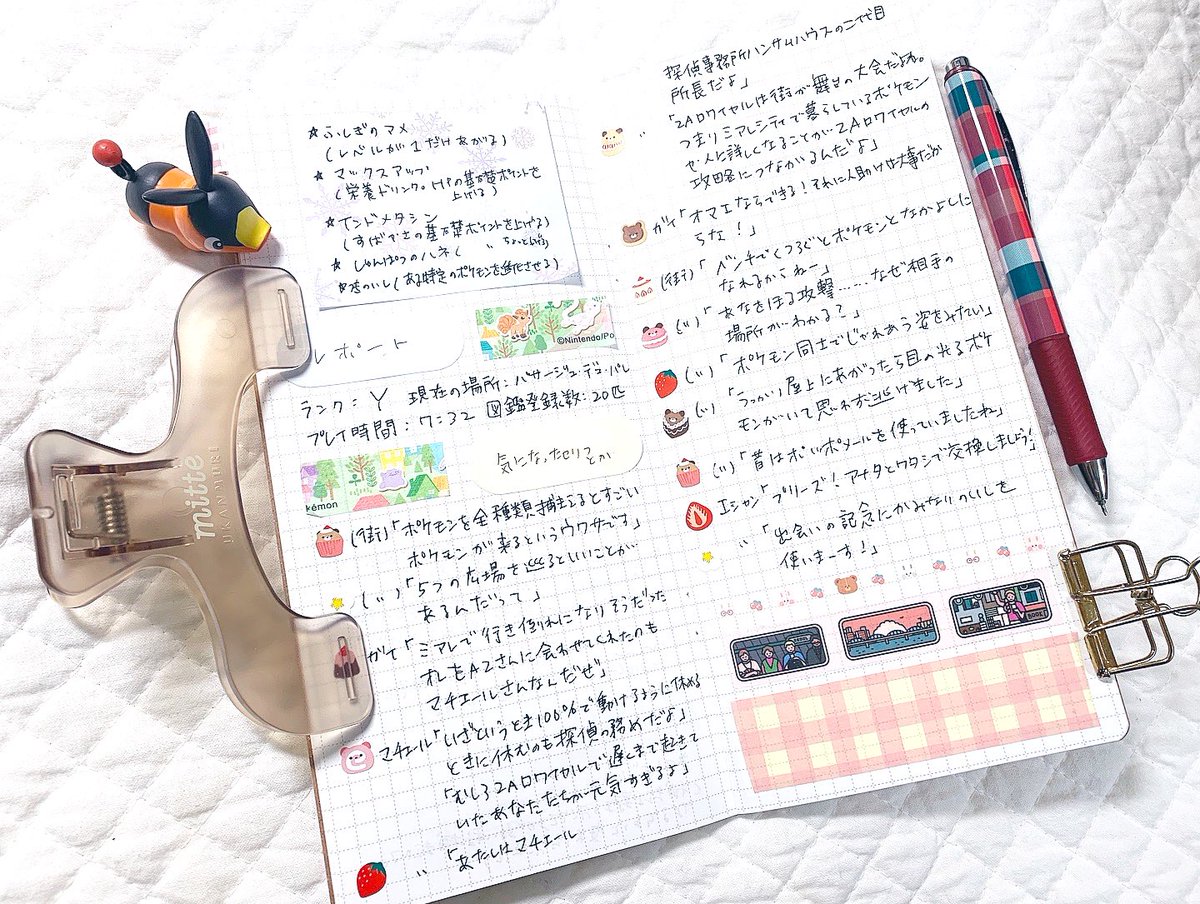 ☆ ふしぎのアメ
(レベルが1だけあがる)
★ マックスアップ
(栄養ドリンク。HPの基礎ポイントを
上げる)
★インドメタシン
(すばやさの基礎ポイントを上げる)
★ しゅんぱつのハネ( 〃 ちょっと
☆ いし(ある特定のポケモンを進化させる)
©Nintendo/Po
レポート
ランク: Y 現在の場所:パサージュ・デュ・バレ
プレイ時間:7:32 図鑑登録数:20匹
kémon
気になったセリフとか
(街)「ポケモンを全種類捕まえるとすごい
ポケモンが来るというウワサです」
(〃)「5つの広場を巡るといいことが
あるんだって」
ガイ「ミアレで行き倒れになりそうだった
オレをAZさんに会わせてくれたのも
マチエールさんなんだぜ」
マチエール「いざというとき100%で動けるように休める
ときに休むのも探偵の務めだよ」
「むしろZAロワイヤルで遅くまで起きて
いたあなたたちが元気すぎるよ」
〃 「あたしはマチエール
探偵事務所ハンサムハウスの二代目
所長だよ」
〃 「ZAロワイヤルは街が舞台の大会だよね。
つまりミアレシティで暮らしているポケモン
や人に詳しくなることがZAロワイヤルの
攻略につながるんだよ」
ガイ「オマエならできる!それに人助けは大事だか
らな!」
(街)「ベンチでくつろぐとポケモンとなかよしに
なれるからねー」
(〃)「あなをほる攻撃……なぜ相手の
場所がわかる?」
(〃)「ポケモン同士でじゃれあう姿をみたい」
(〃)「うっかり屋上にあがったら目の光るポケ
モンがいて思わず逃げました」
(〃)「昔はホロメールを使っていましたね」
エシャン「プリーズ!アナタとワタシで交換しましよう!
〃 「出会いの記念にかみなりのいしを
使いまーす!」
BOOK
mitte
UKANMURI